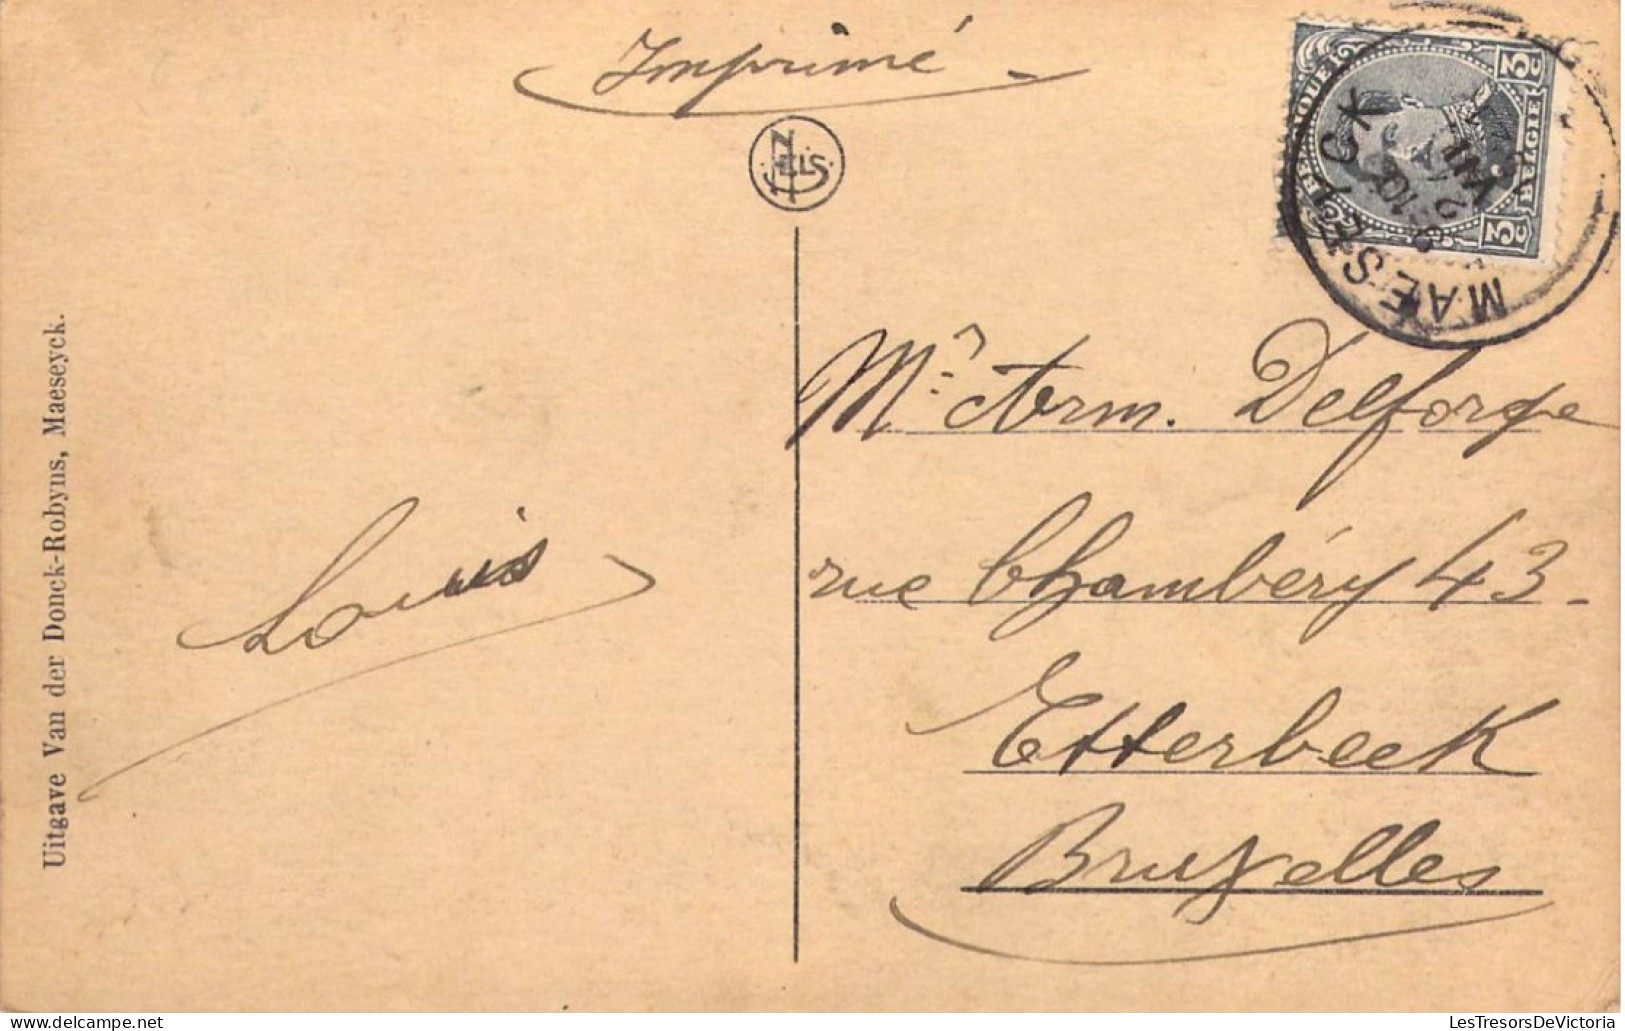 Imprimé
NELS
BELGIQUE
3c
3c
BELGIE
MAESEYCK
Mr Arm. Delforge
rue Chambéry 43
Etterbeek
Bruxelles
Louis
Uitgave Van der Donck-Robyns, Maeseyck.
LesTresorsDeVictoria